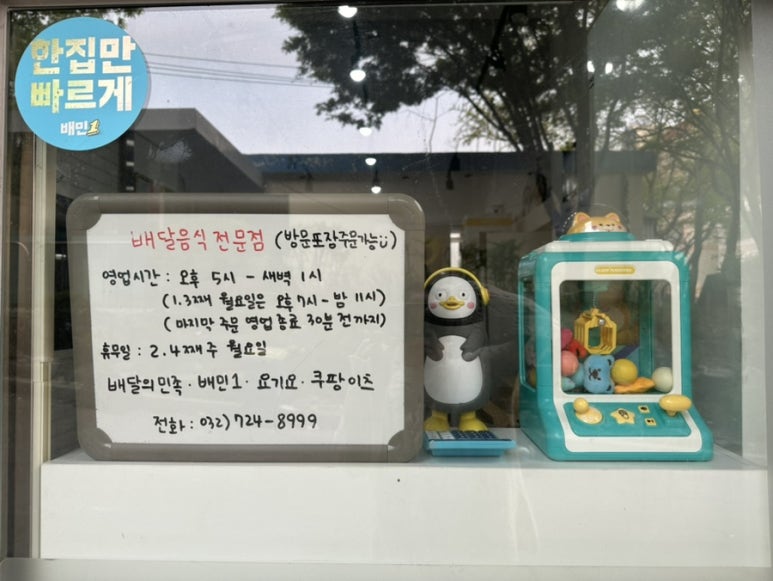 한집만
빠르게
배민1
배달음식 전문점 (방문포장주문가능)
영업시간 : 오후 5시 - 새벽 1시
(1.3째 월요일은 오후 7시 - 밤 11시)
(마지막 주문 영업 종료 30분 전까지)
휴무일 : 2.4째주 월요일
배달의민족 · 배민1 · 요기요 · 쿠팡이츠
전화 : 032) 724-8999